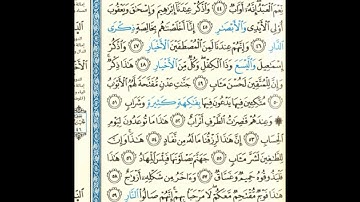 نِّعْمَ ٱلْعَبْدُ إِنَّهُۥٓ أَوَّابٌ ٤٤ وَٱذْكُرْ عِبَٰدَنَآ إِبْرَٰهِيمَ وَإِسْحَٰقَ وَيَعْقُوبَ
أُو۟لِى ٱلْأَيْدِى وَٱلْأَبْصَٰرِ ٤٥ إِنَّآ أَخْلَصْنَٰهُم بِخَالِصَةٍ ذِكْرَى
ٱلدَّارِ ٤٦ وَإِنَّهُمْ عِندَنَا لَمِنَ ٱلْمُصْطَفَيْنَ ٱلْأَخْيَارِ ٤٧ وَٱذْكُرْ
إِسْمَٰعِيلَ وَٱلْيَسَعَ وَذَا ٱلْكِفْلِ وَكُلٌّ مِّنَ ٱلْأَخْيَارِ ٤٨ هَٰذَا ذِكْرٌ
وَإِنَّ لِلْمُتَّقِينَ لَحُسْنَ مَـَٔابٍ ٤٩ جَنَّٰتِ عَدْنٍ مُّفَتَّحَةً لَّهُمُ ٱلْأَبْوَٰبُ
٥٠ مُتَّكِـِٔينَ فِيهَا يَدْعُونَ فِيهَا بِفَٰكِهَةٍ كَثِيرَةٍ وَشَرَابٍ ٥١
وَعِندَهُمْ قَٰصِرَٰتُ ٱلطَّرْفِ أَتْرَابٌ ٥٢ هَٰذَا مَا تُوعَدُونَ لِيَوْمِ
ٱلْحِسَابِ ٥٣ إِنَّ هَٰذَا لَرِزْقُنَا مَا لَهُۥ مِن نَّفَادٍ ٥٤ هَٰذَا وَإِنَّ
لِلطَّٰغِينَ لَشَرَّ مَـَٔابٍ ٥٥ جَهَنَّمَ يَصْلَوْنَهَا فَبِئْسَ ٱلْمِهَادُ ٥٦ هَٰذَا
فَلْيَذُوقُوهُ حَمِيمٌ وَغَسَّاقٌ ٥٧ وَءَاخَرُ مِن شَكْلِهِۦٓ أَزْوَٰجٌ ٥٨
هَٰذَا فَوْجٌ مُّقْتَحِمٌ مَّعَكُمْ لَا مَرْحَبًۢا بِهِمْ إِنَّهُمْ صَالُوا۟ ٱلنَّارِ ٥٩